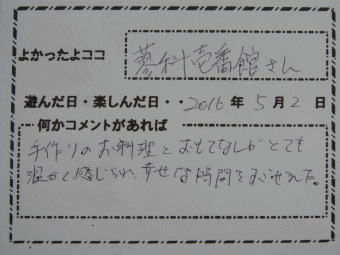 よかったよココ 蓼科壱番館さん
遊んだ日・楽しんだ日・・2016年5月2日
何かコメントがあれば
手作りのお料理とおもてなしがとても
温かく感じられ、幸せな時間をすごせました。